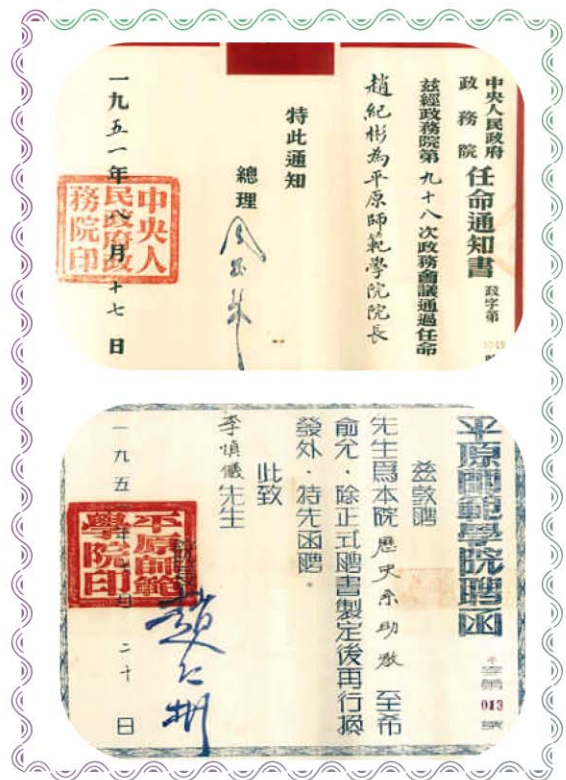 中央人民政府
政務院
任命通知書
政字第
茲經政務院第九十八次政務會議通過任命
趙紀彬為平原師範學院院長
特此通知
總理
周恩來
一九五一年八月十七日
中央人
民政府政
務院印
平原師範學院聘函
字第 013 號
茲敦聘
先生為本院歷史系助教 至希
俞允·除正式聘書製定後再行換
發外·特先函聘。
此致
李慎儀先生
院長
趙紀彬
一九五一年 月二十日
平原師範
學院印